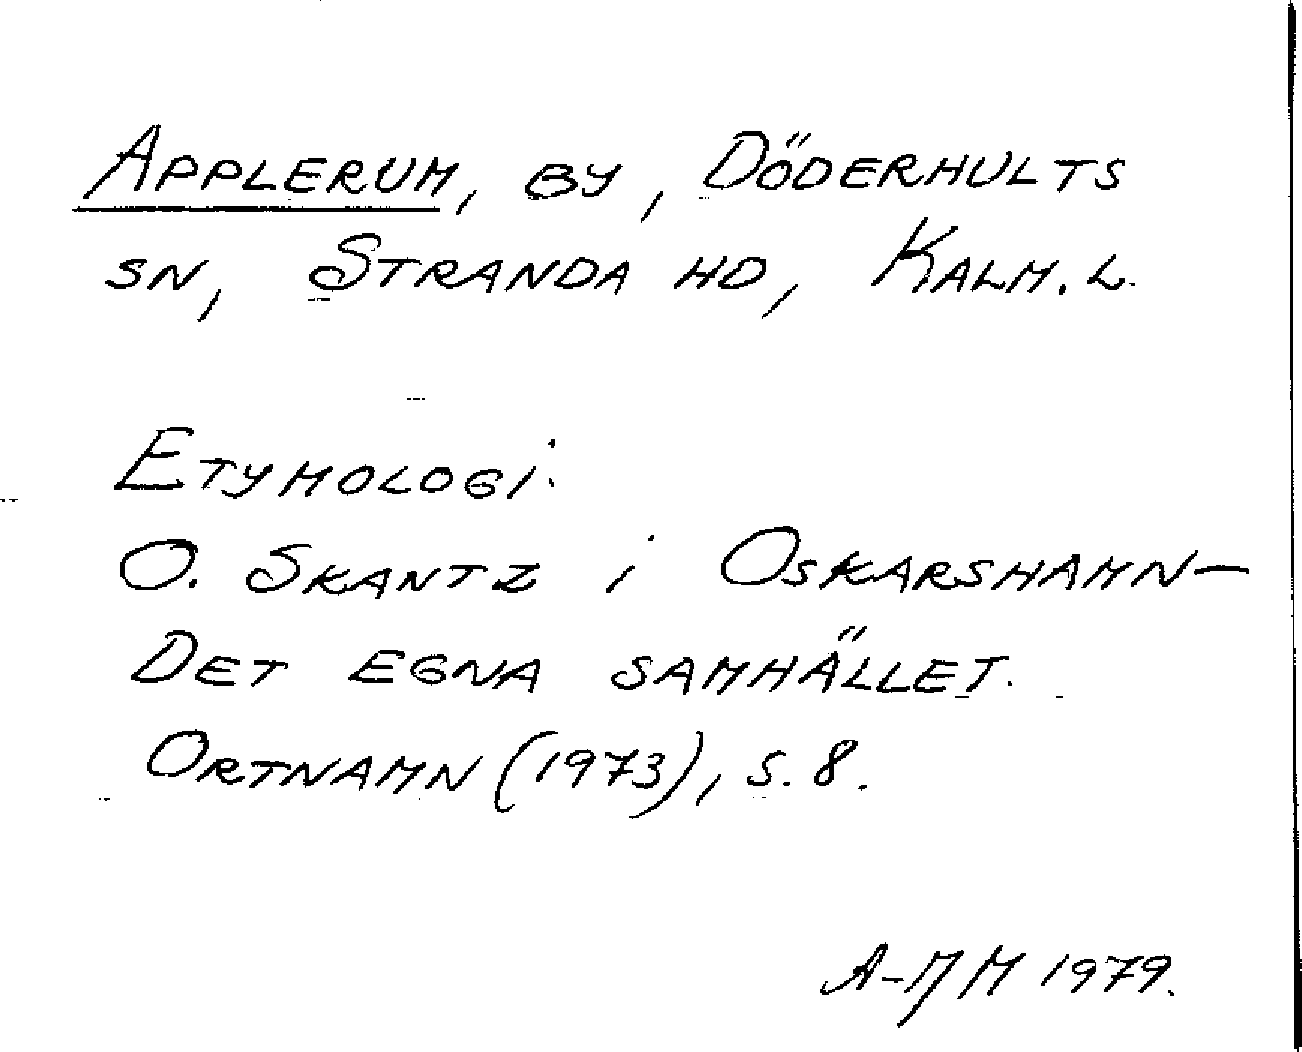 Applerum, by, Döderhults
sn, Stranda hd, Kalm. l.
Etymologi:
O. Skantz i Oskarshamn—
Det egna samhället.
Ortnamn (1973), s. 8.
A-MM 1979.